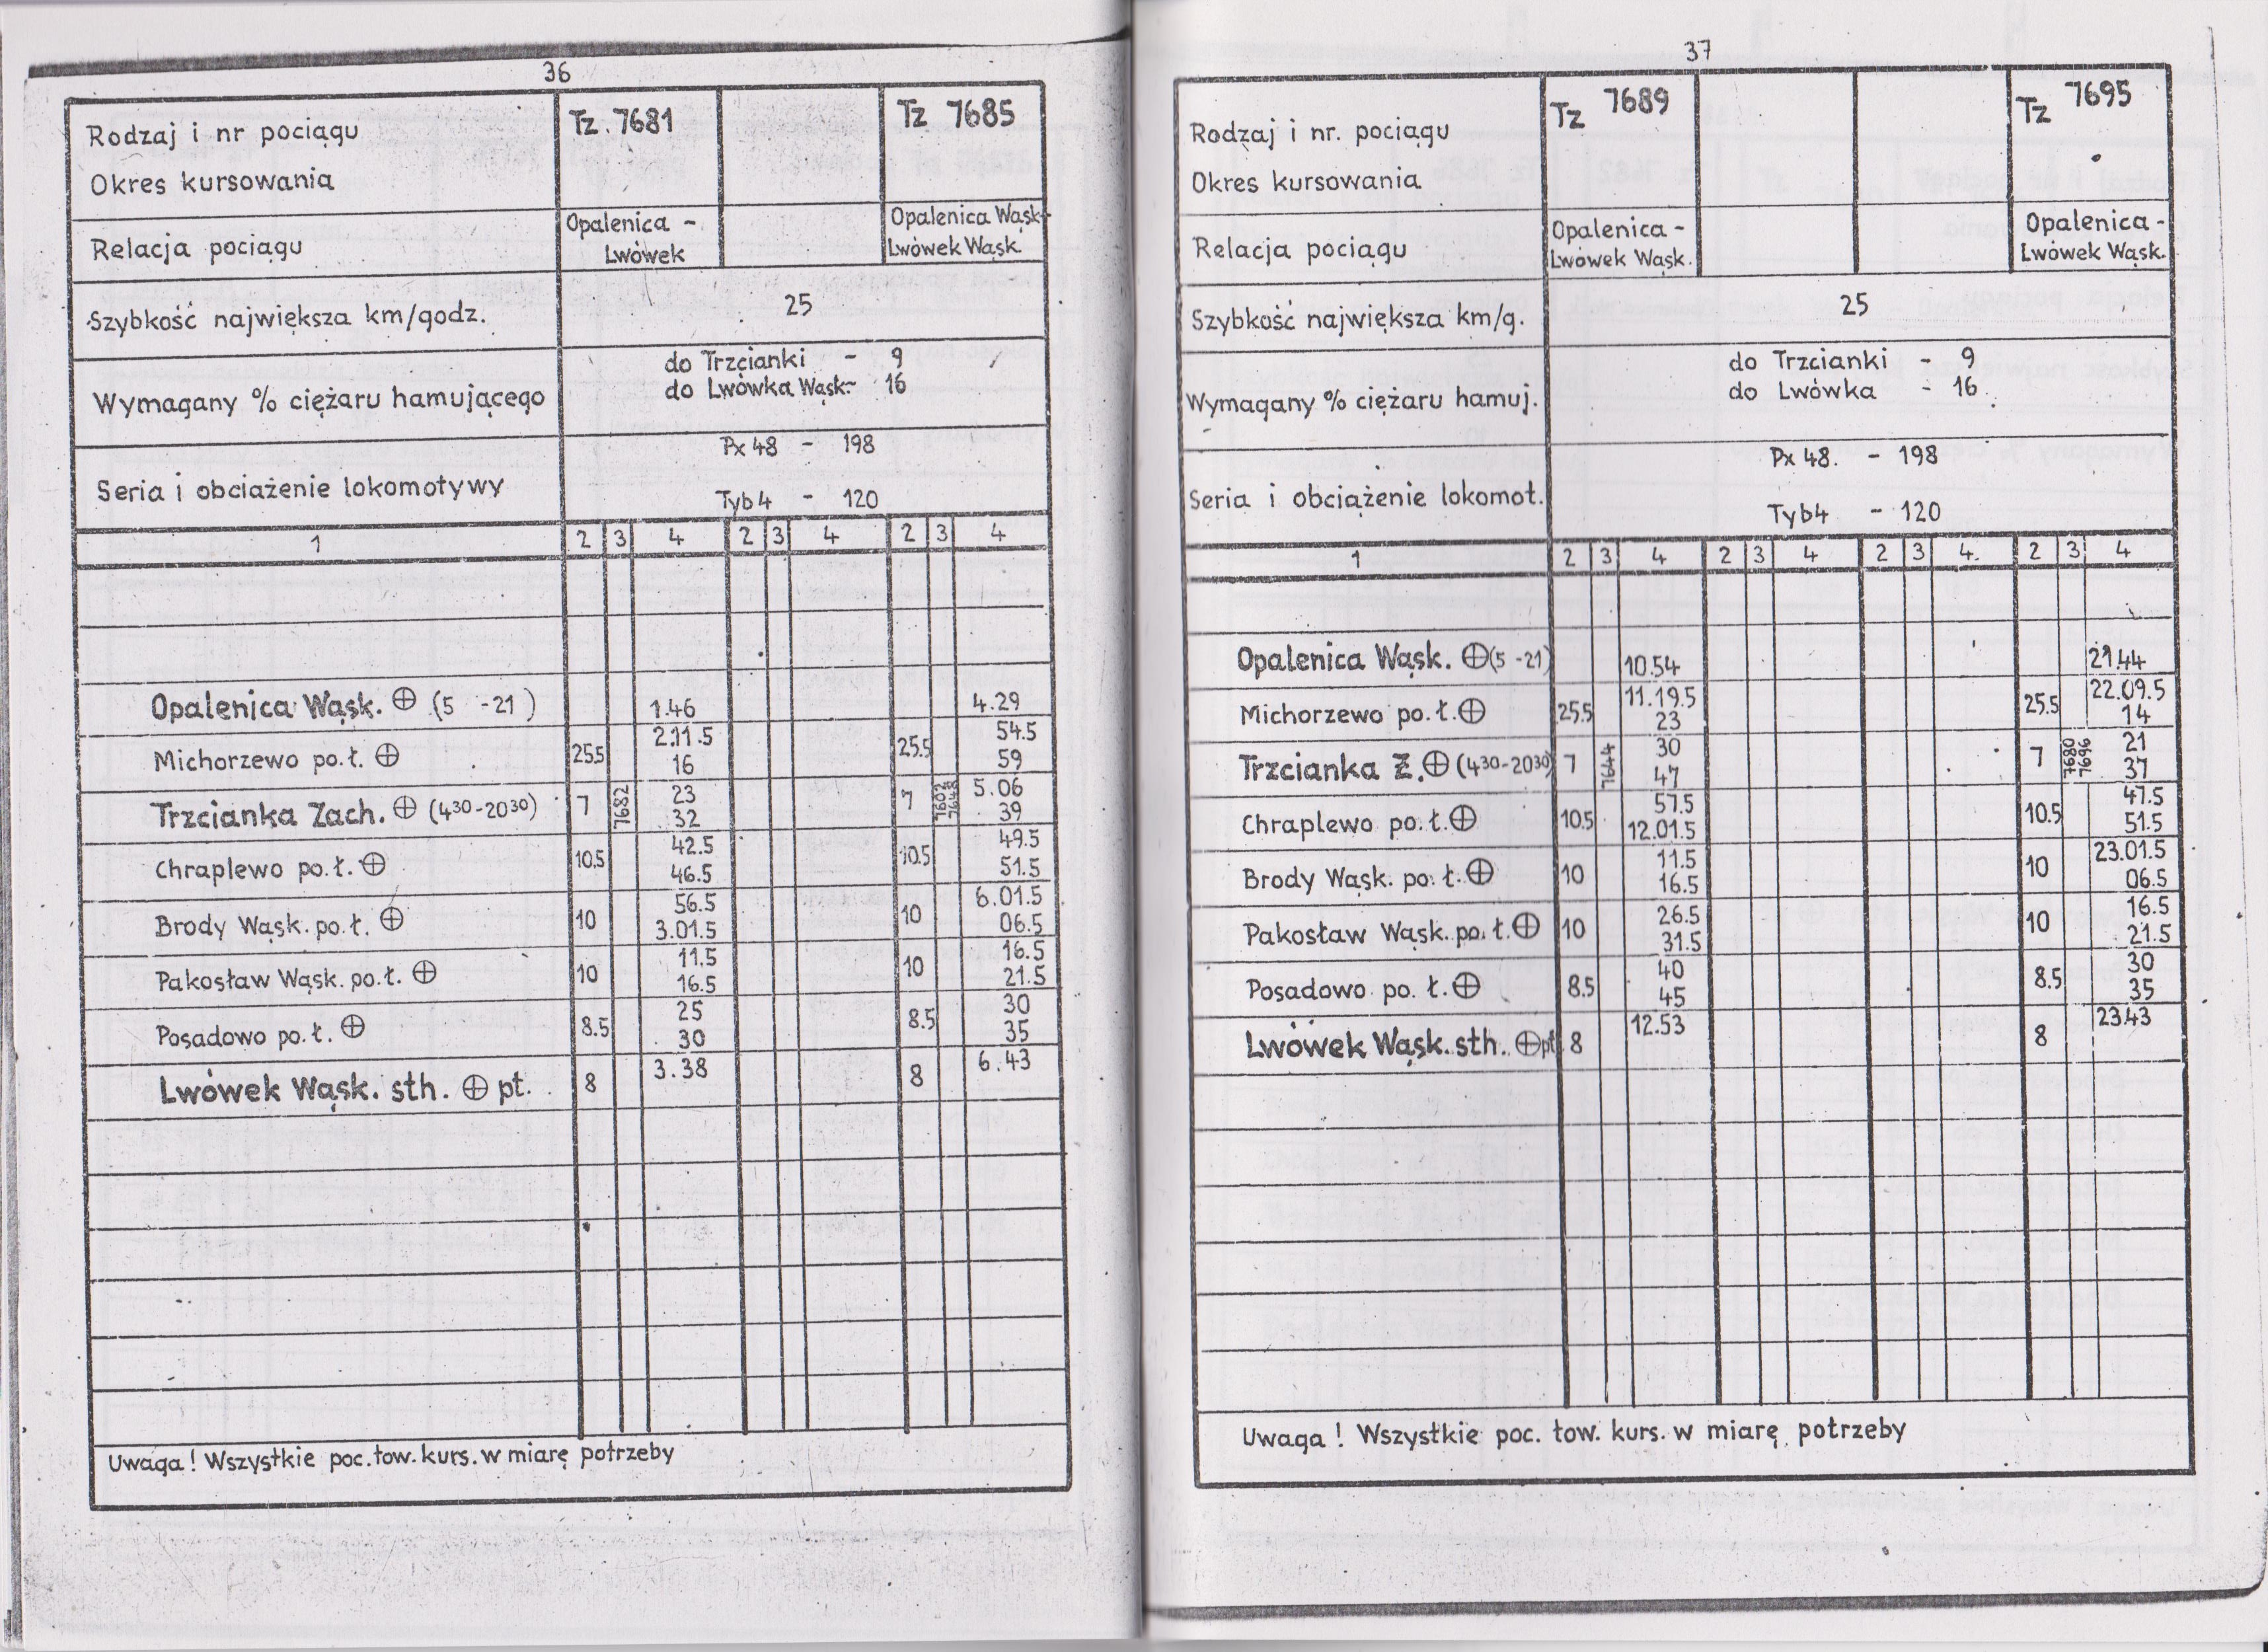 36
Rodzaj i nr pociągu Tz. 7681 Tz 7685
Okres kursowania
Relacja pociągu Opalenica - Lwówek Opalenica Wąsk- Lwówek Wąsk.
Szybkość największa km/godz. 25
Wymagany % ciężaru hamującego do Trzcianki - 9
do Lwówka Wąsk- 16
Seria i obciążenie lokomotywy Px 48 - 198
Tyb4 - 120
1 2 3 4 2 3 4 2 3 4
Opalenica Wąsk. ⊕ (5 -21) 1.46 4.29
Michorzewo po.ł. ⊕ 25.5 2.11.5 25.5 54.5
16 59
Trzcianka Zach. ⊕ (4³⁰-20³⁰) 7 7682 23 7 5.06
32 39
Chraplewo po.ł. ⊕ 10.5 42.5 10.5 49.5
46.5 51.5
Brody Wąsk. po.ł. ⊕ 10 56.5 10 6.01.5
3.01.5 06.5
Pakosław Wąsk. po.ł. ⊕ 10 11.5 10 16.5
16.5 21.5
Posadowo po.ł. ⊕ 8.5 25 8.5 30
30 35
Lwówek Wąsk. sth. ⊕ pt. 8 3.38 8 6.43
Uwaga! Wszystkie poc.tow. kurs. w miarę potrzeby
37
Rodzaj i nr. pociągu Tz 7689 Tz 7695
Okres kursowania
Relacja pociągu Opalenica - Lwówek Wąsk. Opalenica - Lwówek Wąsk.
Szybkość największa km/g. 25
Wymagany % ciężaru hamuj. do Trzcianki - 9
do Lwówka - 16
Seria i obciążenie lokomot. Px 48. - 198
Tyb4 - 120
1 2 3 4 2 3 4 2 3 4. 2 3 4
Opalenica Wąsk. ⊕ (5 -21) 10.54 21.44
Michorzewo po.ł. ⊕ 25.5 11.19.5 25.5 22.09.5
23 14
Trzcianka Z. ⊕ (4³⁰-20³⁰) 7 7644 30 7 7680 7696 21
47 37
Chraplewo po.ł. ⊕ 10.5 57.5 10.5 47.5
12.01.5 51.5
Brody Wąsk. po. ł. ⊕ 10 11.5 10 23.01.5
16.5 06.5
Pakosław Wąsk. po. ł. ⊕ 10 26.5 10 16.5
31.5 21.5
Posadowo po. ł. ⊕ 8.5 40 8.5 30
45 35
Lwówek Wąsk. sth. ⊕ pt. 8 12.53 8 23.43
Uwaga! Wszystkie poc. tow. kurs. w miarę potrzeby